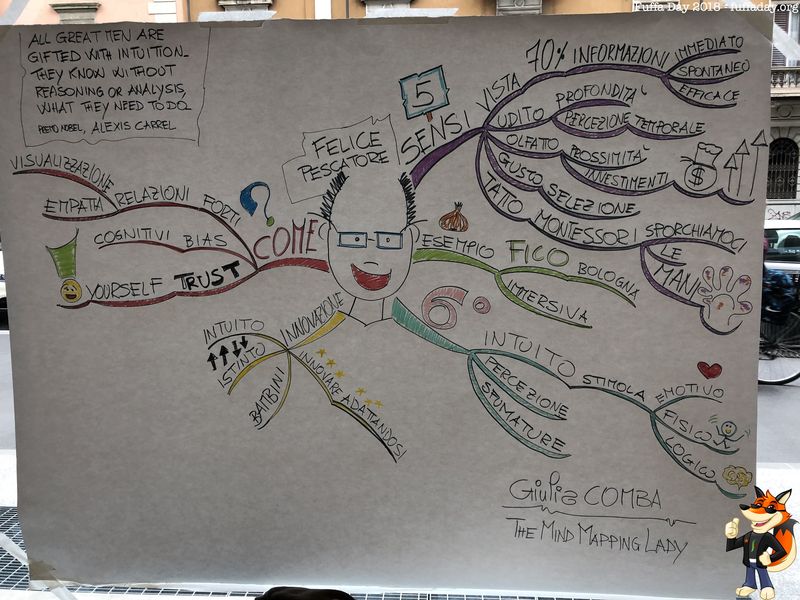 Fuffa Day 2018 - fuffaday.org
ALL GREAT MEN ARE
GIFTED WITH INTUITION.
THEY KNOW WITHOUT
REASONING OR ANALYSIS,
WHAT THEY NEED TO DO
PRETO NOBEL, ALEXIS CARREL
FELICE
PESCATORE
5
SENSI
VISTA
70% INFORMAZIONI
IMMEDIATO
SPONTANEO
EFFICACE
UDITO
PROFONDITÀ
PERCEZIONE TEMPORALE
OLFATTO
PROSSIMITÀ
INVESTIMENTI
$
GUSTO SELEZIONE
TATTO MONTESSORI SPORCHIAMOCI
LE
MANI
ESEMPIO FICO BOLOGNA
IMMERSIVA
6°
INTUITO STIMOLA EMOTIVO
FISICO
LOGICO
PERCEZIONE
SFUMATURE
INNOVAZIONE
INTUITO
ISTINTO
BAMBINI
INNOVARE ADATTANDOSI
COME
?
VISUALIZZAZIONE
EMPATIA RELAZIONI FORTI
COGNITIVI BIAS
YOURSELF TRUST
Giulia COMBA
THE MIND MAPPING LADY